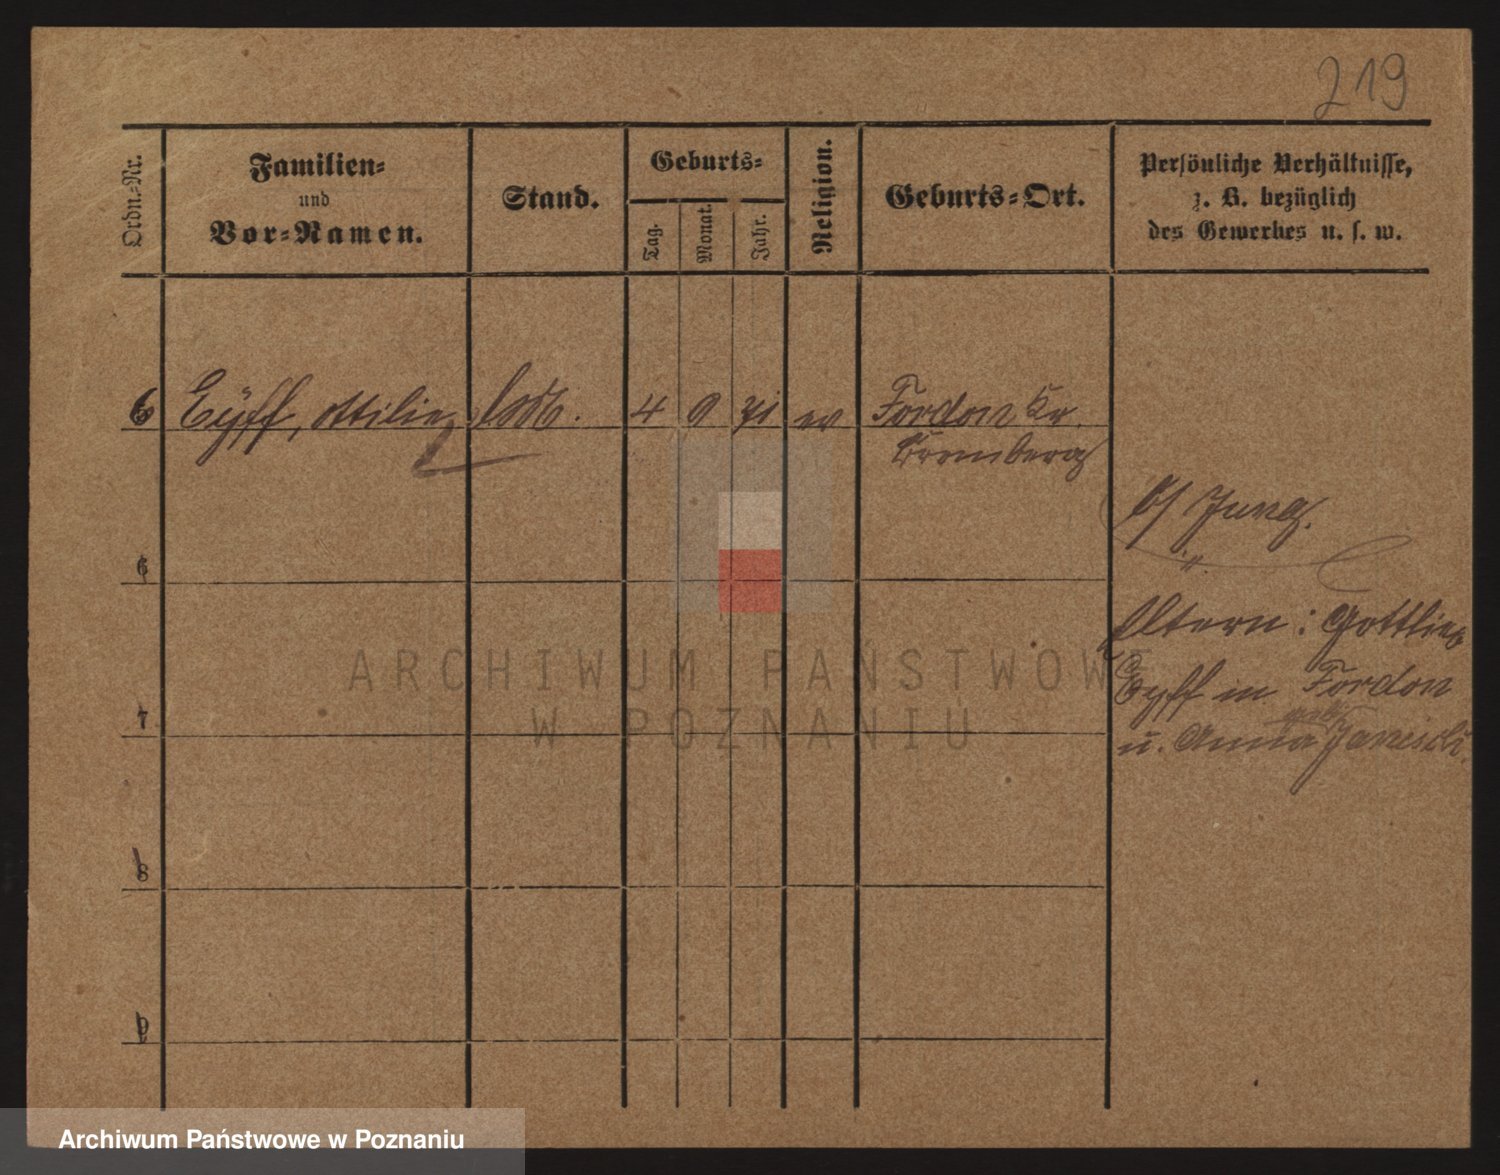 219
Ordn.-Nr.
Familien-
und
Vor-Namen.
Stand.
Geburts-
Tag.
Monat.
Jahr.
Religion.
Geburts-Ort.
Persönliche Verhältnisse,
z. B. bezüglich
des Gewerbes u. s. w.
6 Eyff, Ottilie 4 9 71 ev Fordon Kr.
Bromberg
b/ Jung.
6
Eltern: Gottlieb
Eyff in Fordon
7
u. Anna geb.
8
9
ARCHIWUM PAŃSTWOWE
W POZNANIU
Archiwum Państwowe w Poznaniu